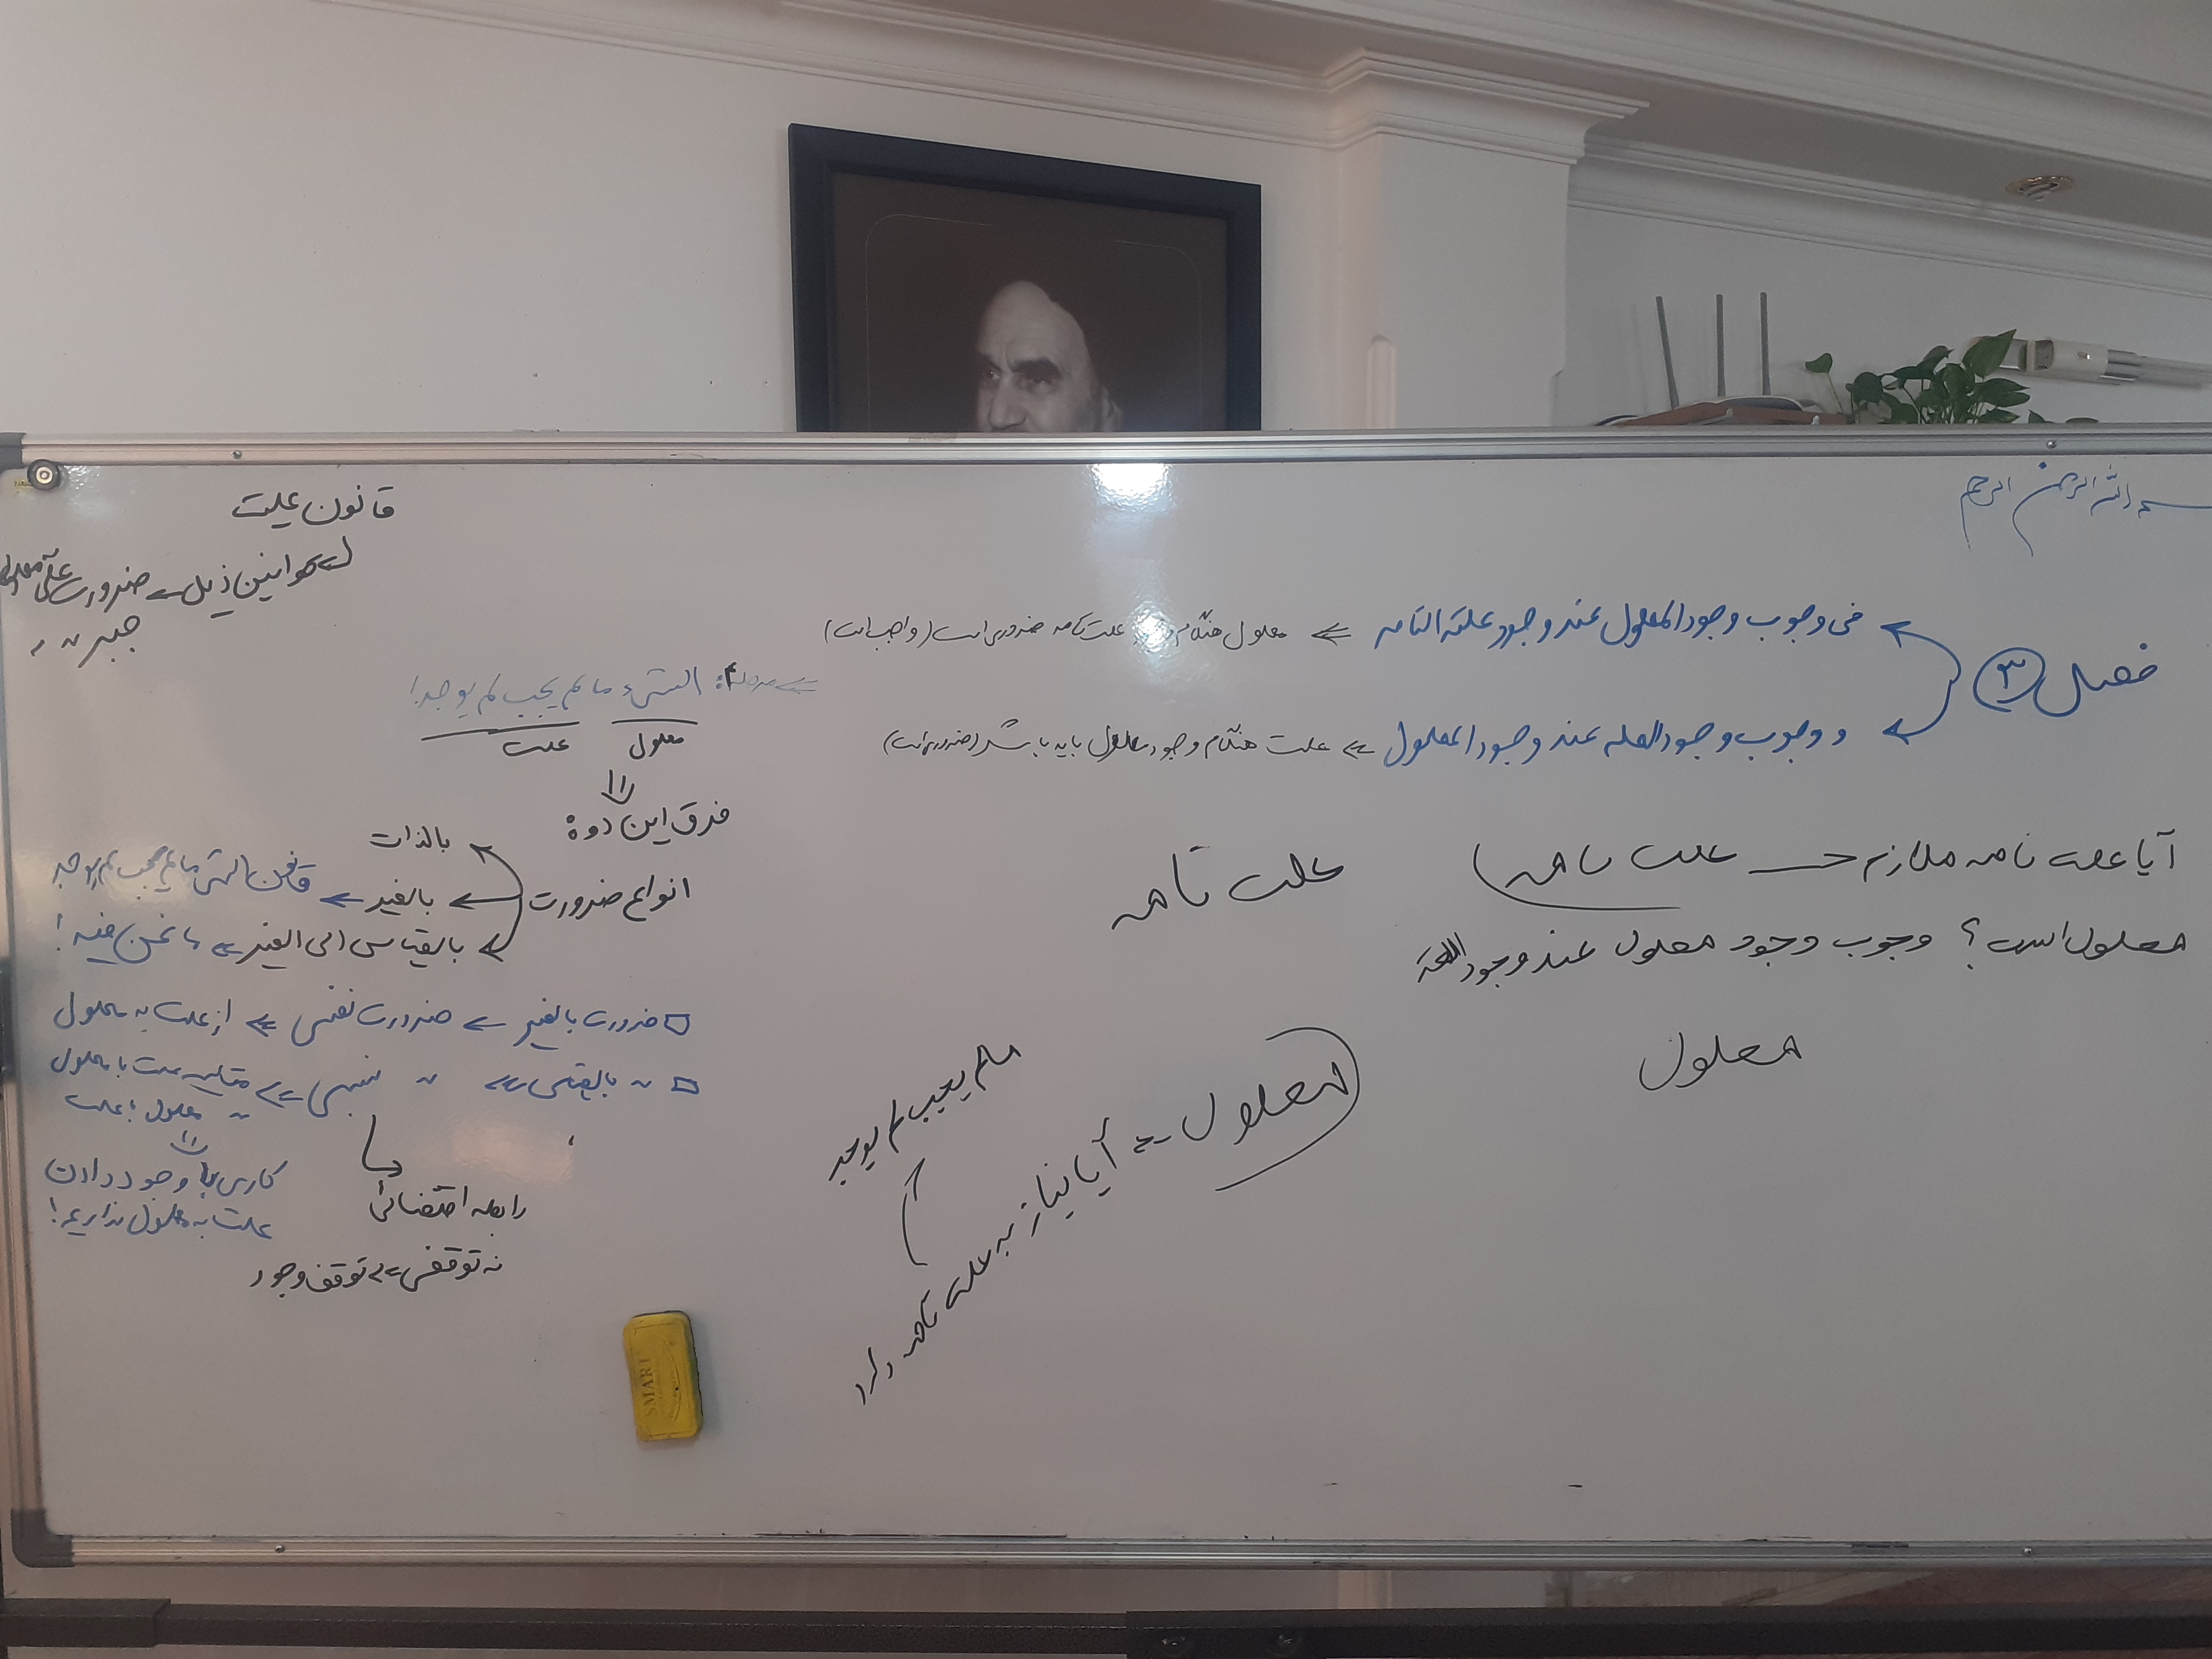 بسم الله الرحمن الرحیم
فصل ۳
فی وجوب وجود المعلول عند وجود علته التامه ⇐ معلول هنگام علت تامه ضروری است (واجب است)
و وجوب وجود العله عند وجود المعلول ⇐ علت هنگام وجود معلول باید باشد (ضروری است)
الشیء ما لم یجب لم یوجد!
معلول علت
فرق این دو؟
آیا علت تامه ملازم ← علت تامه
معلول است؟ وجوب وجود معلول عند وجود العلة
معلول
علت تامه
معلول ⇐ آیا نیاز به علت تامه دارد
مالم یجب لم یوجد
قانون علیت
قوانین ذیل ← ضرورت علی معلولی
جبر 〃 〃
انواع ضرورت
بالذات
بالغیر ⇐ قانون الشی مالم یجب لم یوجد
بالقیاس الی الغیر ⇐ ما نحن فیه!
□ ضرورت بالغیر ⇐ ضرورت نفسی ⇐ از علت به معلول
□ 〃 بالقیاس ⇐ 〃 نسبی ⇐ مقایسه علت با معلول
〃 معلول با علت
کاری با وجود دادن
علت به معلول نداریم!
رابطه اقتضائی
نه توقفی ⇐ توقف وجود
SMART